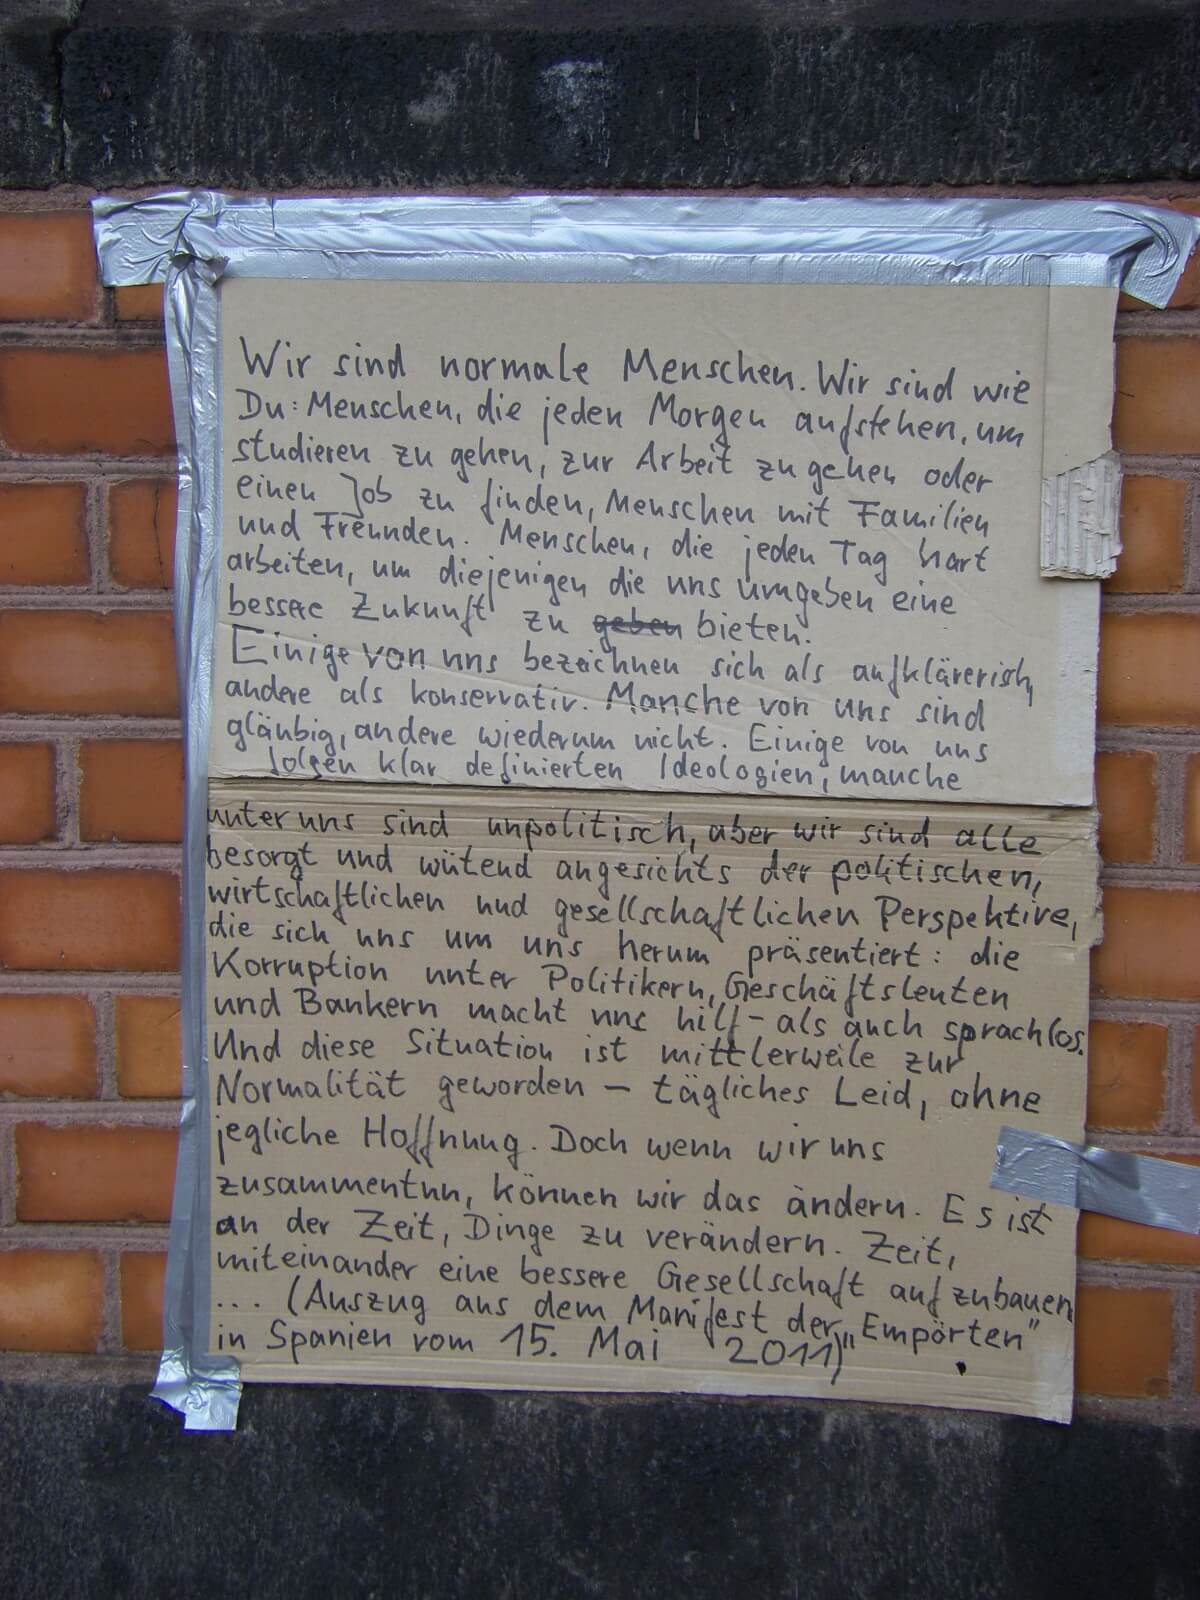 Wir sind normale Menschen. Wir sind wie
Du: Menschen, die jeden Morgen aufstehen, um
studieren zu gehen, zur Arbeit zu gehen oder
einen Job zu finden, Menschen mit Familien
und Freunden. Menschen, die jeden Tag hart
arbeiten, um diejenigen die uns umgeben eine
bessere Zukunft zu geben bieten.
Einige von uns bezeichnen sich als aufklärerisch,
andere als konservativ. Manche von uns sind
gläubig, andere wiederum nicht. Einige von uns
folgen klar definierten Ideologien, manche
unter uns sind unpolitisch, aber wir sind alle
besorgt und wütend angesichts der politischen,
wirtschaftlichen und gesellschaftlichen Perspektive,
die sich uns um uns herum präsentiert: die
Korruption unter Politikern, Geschäftsleuten
und Bankern macht uns hilf- als auch sprachlos.
Und diese Situation ist mittlerweile zur
Normalität geworden – tägliches Leid, ohne
jegliche Hoffnung. Doch wenn wir uns
zusammentun, können wir das ändern. Es ist
an der Zeit, Dinge zu verändern. Zeit,
miteinander eine bessere Gesellschaft aufzubauen
... (Auszug aus dem Manifest der „Empörten"
in Spanien vom 15. Mai 2011)"